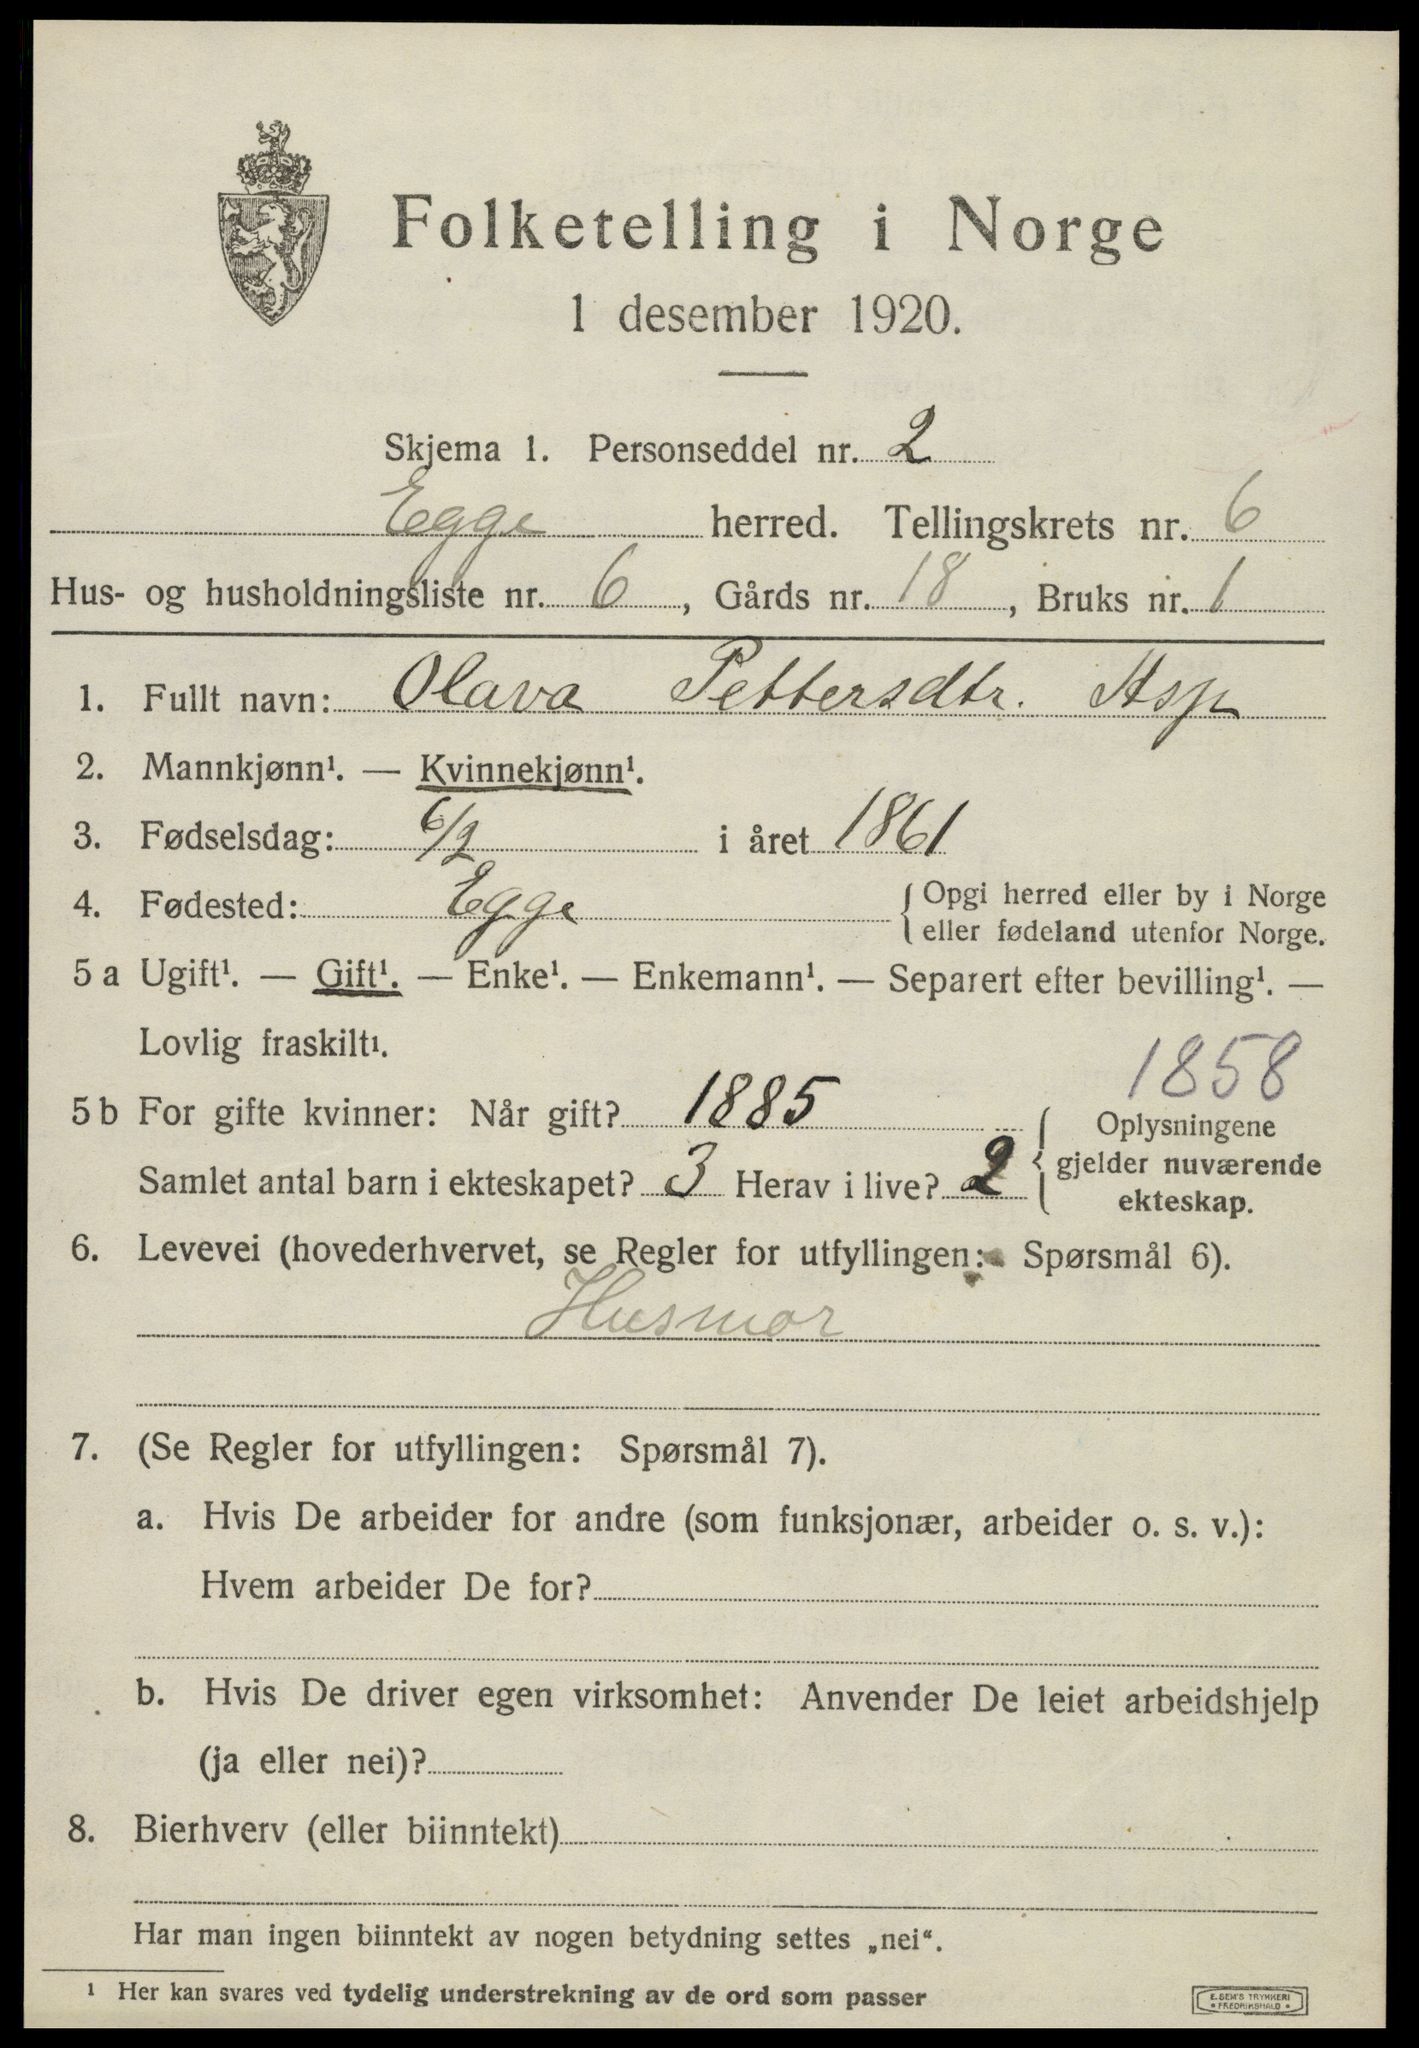 Folketelling i Norge
1 desember 1920.
Skjema 1. Personseddel nr. 2
Egge herred. Tellingskrets nr. 6
Hus- og husholdningsliste nr. 6, Gårds nr. 18, Bruks nr. 1
1. Fullt navn: Olava Pettersdtr. Asp
2. Mannkjønn¹. — Kvinnekjønn¹.
3. Fødselsdag: 6/2 i året 1861
4. Fødested: Egge { Opgi herred eller by i Norge
eller fødeland utenfor Norge.
5 a Ugift¹. — Gift¹. — Enke¹. — Enkemann¹. — Separert efter bevilling¹. —
Lovlig fraskilt¹.
1858
5 b For gifte kvinner: Når gift? 1885
Samlet antal barn i ekteskapet? 3 Herav i live? 2
{ Oplysningene
gjelder nuværende
ekteskap.
6. Levevei (hovederhvervet, se Regler for utfyllingen: Spørsmål 6).
Husmor
7. (Se Regler for utfyllingen: Spørsmål 7).
a. Hvis De arbeider for andre (som funksjonær, arbeider o. s. v.):
Hvem arbeider De for?
b. Hvis De driver egen virksomhet: Anvender De leiet arbeidshjelp
(ja eller nei)?
8. Bierhverv (eller biinntekt)
Har man ingen biinntekt av nogen betydning settes „nei“.
¹ Her kan svares ved tydelig understrekning av de ord som passer
E. SEM'S TRYKKERI
• FREDRIKSHALD •